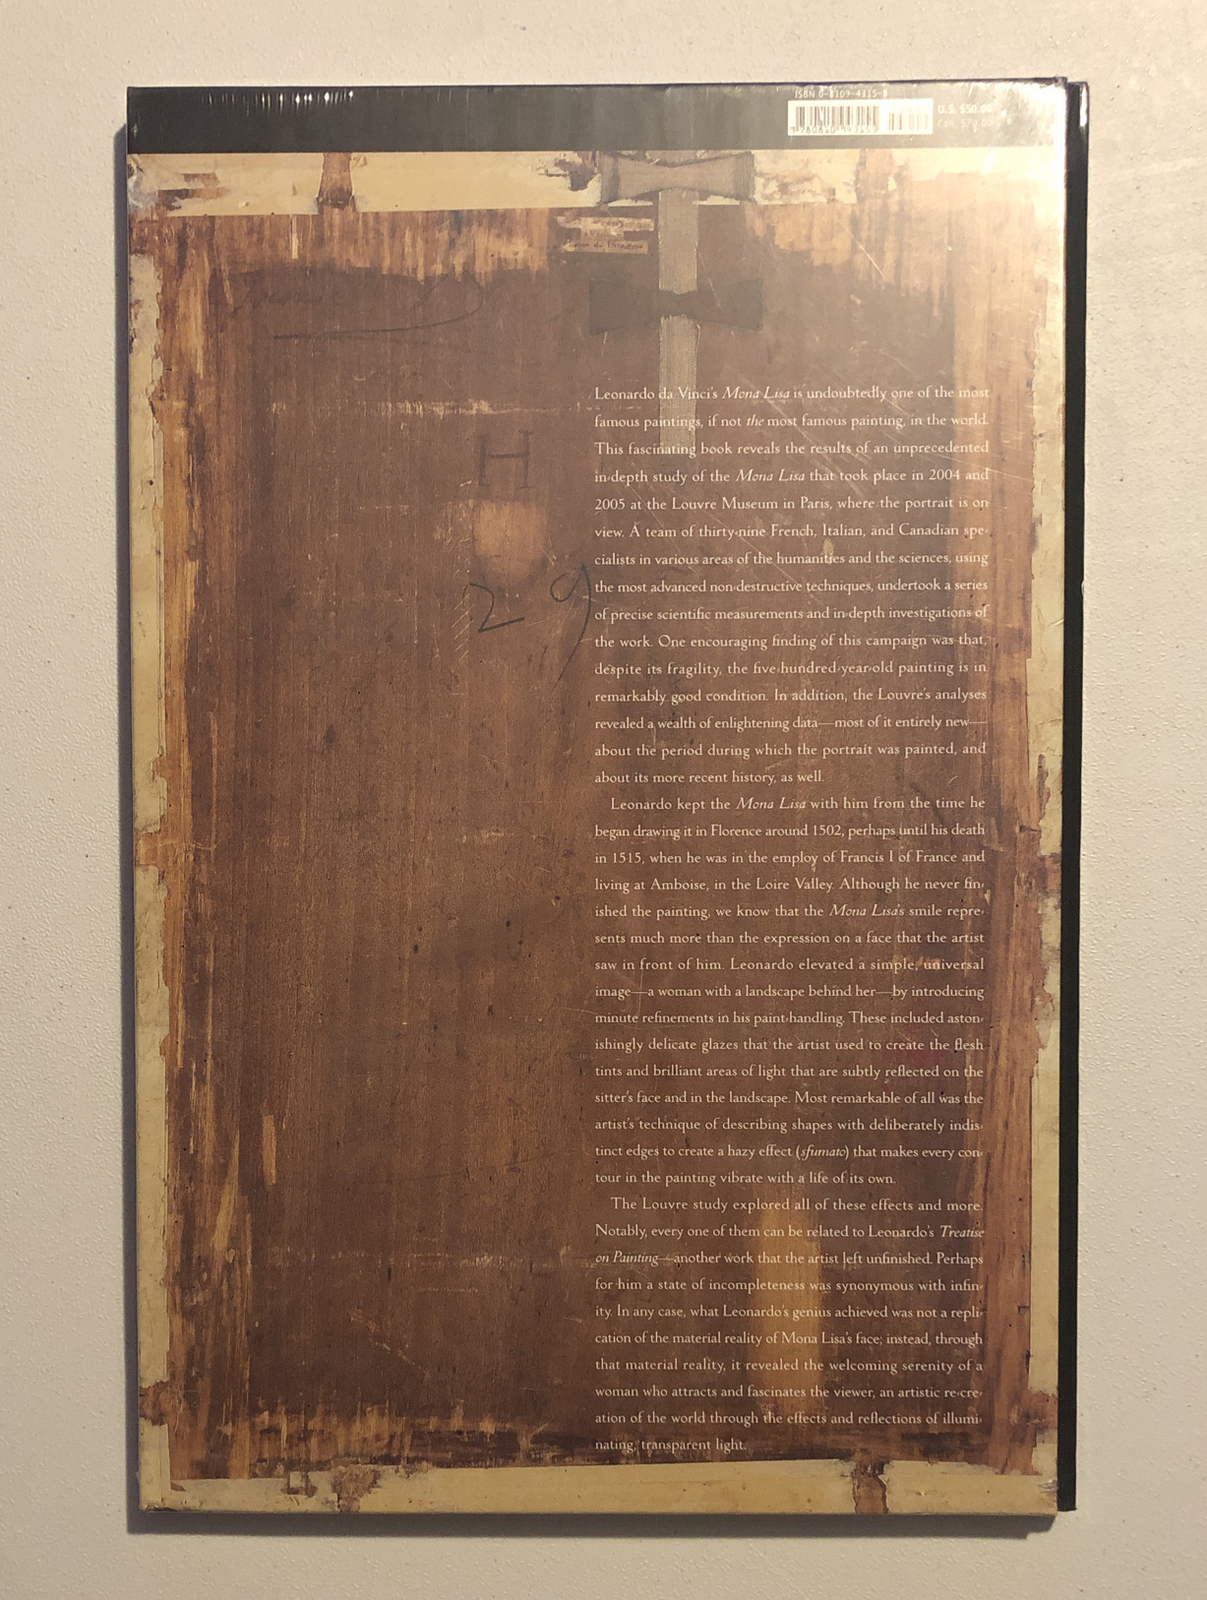 ISBN 0-8109-4315-8
U.S. $50.00
Can. $70.00
H
29
Leonardo da Vinci's Mona Lisa is undoubtedly one of the most
famous paintings, if not the most famous painting, in the world.
This fascinating book reveals the results of an unprecedented
in-depth study of the Mona Lisa that took place in 2004 and
2005 at the Louvre Museum in Paris, where the portrait is on
view. A team of thirty-nine French, Italian, and Canadian spe-
cialists in various areas of the humanities and the sciences, using
the most advanced non-destructive techniques, undertook a series
of precise scientific measurements and in-depth investigations of
the work. One encouraging finding of this campaign was that,
despite its fragility, the five-hundred-year-old painting is in
remarkably good condition. In addition, the Louvre's analyses
revealed a wealth of enlightening data—most of it entirely new—
about the period during which the portrait was painted, and
about its more recent history, as well.
Leonardo kept the Mona Lisa with him from the time he
began drawing it in Florence around 1502, perhaps until his death
in 1515, when he was in the employ of Francis I of France and
living at Amboise, in the Loire Valley. Although he never fin-
ished the painting, we know that the Mona Lisa's smile repre-
sents much more than the expression on a face that the artist
saw in front of him. Leonardo elevated a simple, universal
image—a woman with a landscape behind her—by introducing
minute refinements in his paint-handling. These included aston-
ishingly delicate glazes that the artist used to create the flesh
tints and brilliant areas of light that are subtly reflected on the
sitter's face and in the landscape. Most remarkable of all was the
artist's technique of describing shapes with deliberately indis-
tinct edges to create a hazy effect (sfumato) that makes every con-
tour in the painting vibrate with a life of its own.
The Louvre study explored all of these effects and more.
Notably, every one of them can be related to Leonardo's Treatise
on Painting—another work that the artist left unfinished. Perhaps
for him a state of incompleteness was synonymous with infin-
ity. In any case, what Leonardo's genius achieved was not a repli-
cation of the material reality of Mona Lisa's face; instead, through
that material reality, it revealed the welcoming serenity of a
woman who attracts and fascinates the viewer, an artistic re-cre-
ation of the world through the effects and reflections of illumi-
nating, transparent light.